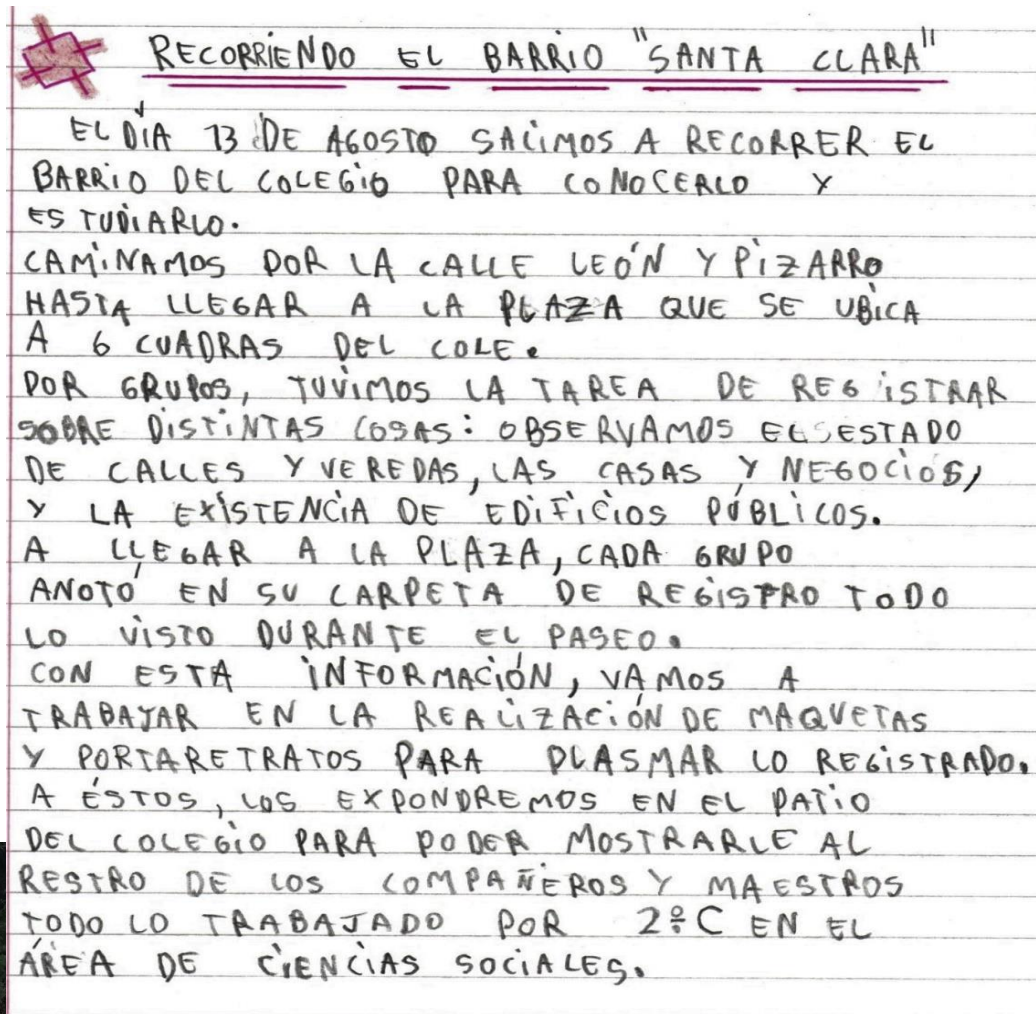 RECORRIENDO EL BARRIO "SANTA CLARA"
EL DÍA 13 DE AGOSTO SALIMOS A RECORRER EL
BARRIO DEL COLEGIO PARA CONOCERLO Y
ESTUDIARLO.
CAMINAMOS POR LA CALLE LEÓN Y PIZARRO
HASTA LLEGAR A LA PLAZA QUE SE UBICA
A 6 CUADRAS DEL COLE.
POR GRUPOS, TUVIMOS LA TAREA DE REGISTRAR
SOBRE DISTINTAS COSAS: OBSERVAMOS EL ESTADO
DE CALLES Y VEREDAS, LAS CASAS Y NEGOCIOS,
Y LA EXISTENCIA DE EDIFICIOS PÚBLICOS.
A LLEGAR A LA PLAZA, CADA GRUPO
ANOTÓ EN SU CARPETA DE REGISTRO TODO
LO VISTO DURANTE EL PASEO.
CON ESTA INFORMACIÓN, VAMOS A
TRABAJAR EN LA REALIZACIÓN DE MAQUETAS
Y PORTARETRATOS PARA PLASMAR LO REGISTRADO.
A ÉSTOS, LOS EXPONDREMOS EN EL PATIO
DEL COLEGIO PARA PODER MOSTRARLE AL
RESTRO DE LOS COMPAÑEROS Y MAESTROS
TODO LO TRABAJADO POR 2º C EN EL
ÁREA DE CIENCIAS SOCIALES.